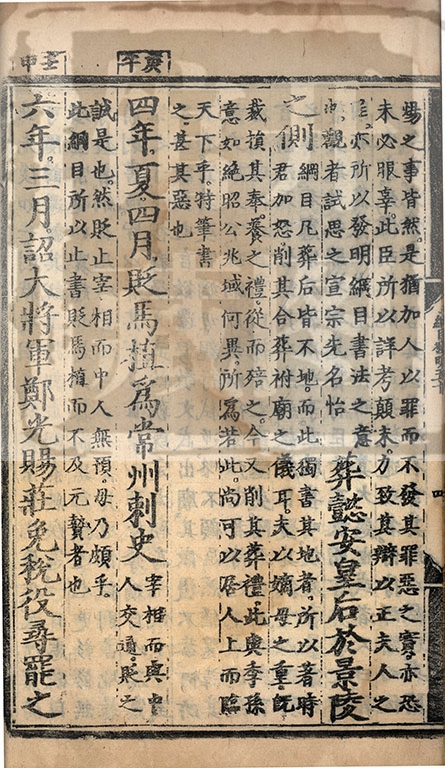 庚午
壬申
煬之事皆然是猶加人以罪而不發其罪惡之實亦恐
未必服辜此臣所以詳考顛末力致其辯以正夫人之
亦所以發明綱目書法之意
觀者試思之宣宗先名怡
葬懿安皇后於景陵
之側
綱目凡葬后皆不地而此獨書其地者所以著時
君加怨削其合葬祔廟之儀耳夫以嫡母之重既
裁損其奉養之禮從而殕之今又削其葬禮此與季孫
意如絶昭公兆域何異所為若此尚可以居人上而臨
天下乎特筆書
之甚其惡也
四年夏四月貶馬植為常州刺史
宰相而與中
人交通貶之
誠是也然貶止宰相而中人無預毋乃頗乎
此綱目所以止書貶馬植而不及元贄者也
六年三月詔大將軍鄭光賜莊免稅役尋罷之